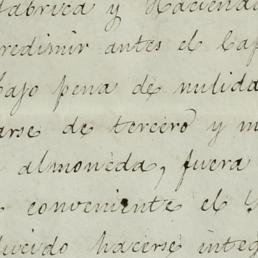 fabrica y Hacienda
redimir antes el Cap
bajo pena de nulida
arse de tercero y m
almoneda, fuera
conveniente el
lucido hacerse integ